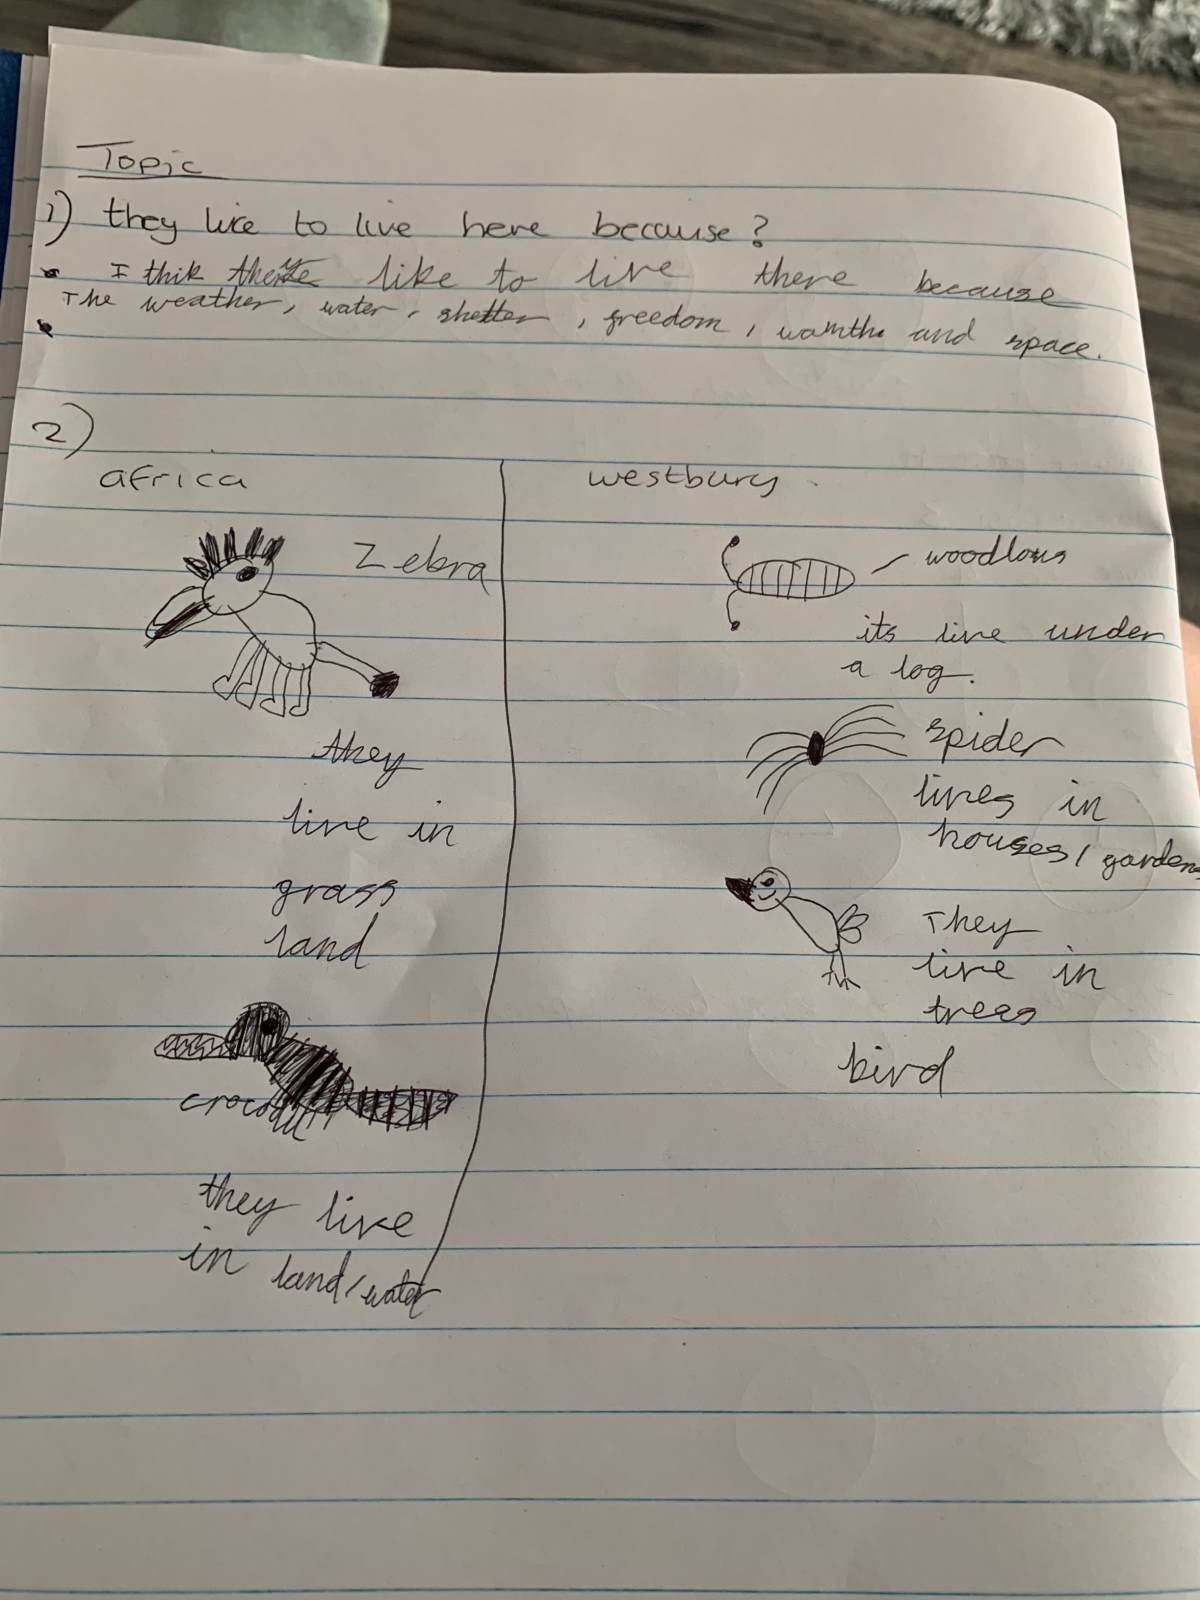 Topic
1) they like to live here because?
I thik like to live there because
The weather, water, shelter, freedom, wamthe and space.
2)
africa
Zebra
they
live in
grass
land
crocodil
they live
in land/water
westbury
woodlous
its live under
a log.
spider
lives in
houses/gardens
They
live in
trees
bird